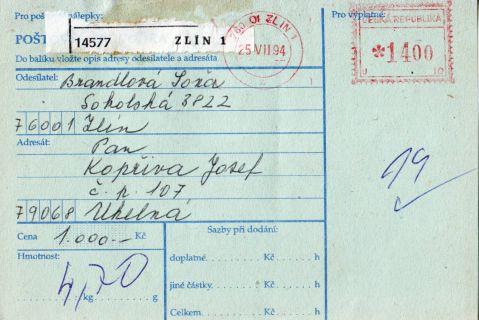 Pro poš
nálepky:
Pro výplatné:
POŠT
14577 ZLÍN 1
760 01 ZLÍN 1
25.VII.94
ČESKÁ REPUBLIKA
*1400
Do balíku vložte opis adresy odesílatele a adresáta
Odesílatel: Brandlová Soňa
Sokolská 3822
76001 Zlín
Adresát: Pan
Kopřiva Josef
č. p. 107
79068 Uhelná
Cena 1.000.- Kč
Hmotnost:
4,70
kg g
Sazby při dodání:
doplatné Kč h
jiné částky Kč h
Celkem Kč h
19